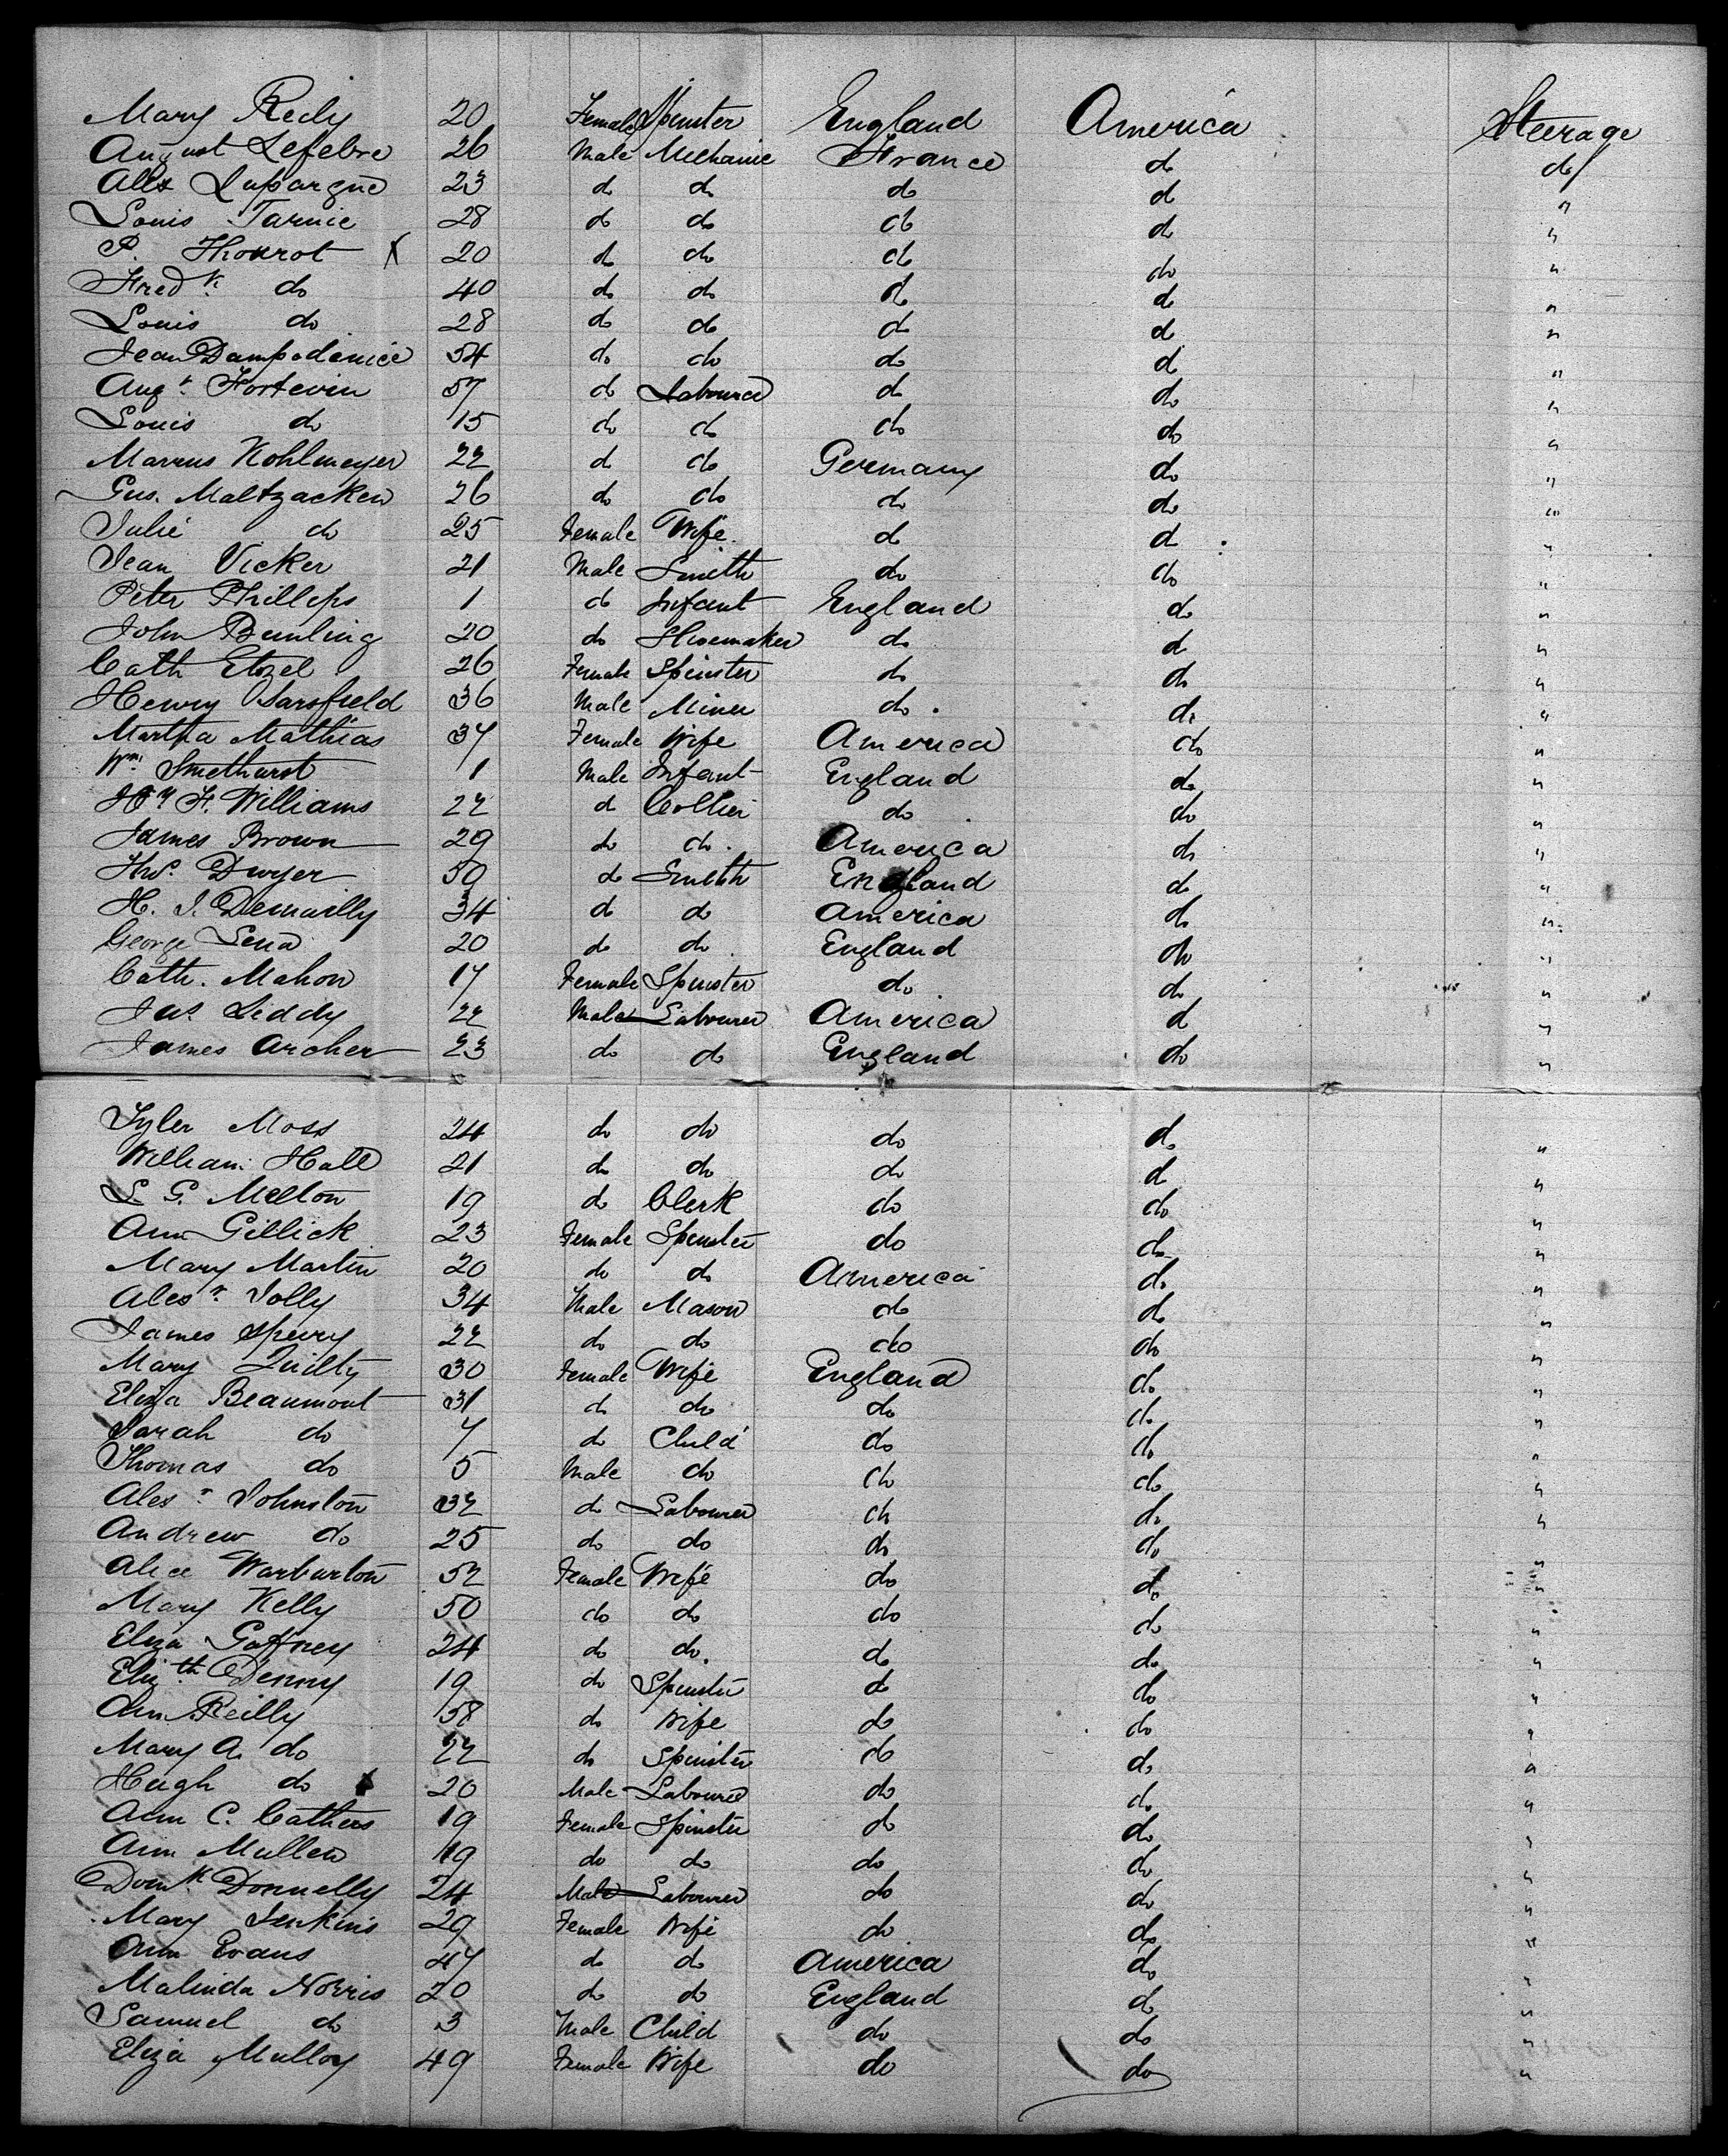 Mary Reily 20 Female Spinster England America Steerage
August Lefebre 26 Male Mechanic France do do
Alex Lupargue 23 do do do do "
Louis Tarnie 28 do do do do "
P. Thourot X 20 do do do do "
Fredk. do 40 do do do do "
Louis do 28 do do do do "
Jean Dampodenice 54 do do do do "
Augt. Fortevin 57 do Labourer do do "
Louis do 15 do do do do "
Marcus Kohlmeyer 22 do do Germany do "
Gus. Maltzacken 26 do do do do "
Julie do 25 Female Wife do do "
Jean Vicker 21 Male Smith do do "
Peter Phillips 1 do Infant England do "
John Bunling 20 do Shoemaker do do "
Cath Etzel 26 Female Spinster do do "
Henry Sarsfield 36 Male Miner do do "
Martha Mathias 37 Female Wife America do "
Wm. Smethurst 1 Male Infant England do "
Hy H. Williams 22 do Collier do do "
James Brown 29 do do America do "
Thos. Dwyer 50 do Smith England do "
H. J. Demailly 34 do do America do "
George Sena 20 do do England do "
Cath. Mahon 17 Female Spinster do do "
Jas. Liddy 22 Male Labourer America do "
James Archer 23 do do England do "
Tyler Moss 24 do do do do "
William Hall 21 do do do do "
S. G. Melton 19 do Clerk do do "
Ann Gillick 23 Female Spinster do do "
Mary Martin 20 do do America do "
Alexr. Jolly 34 Male Mason do do "
James Speiry 22 do do do do "
Mary Quilty 30 Female Wife England do "
Eliza Beaumont 31 do do do do "
Sarah do 7 do Child do do "
Thomas do 5 Male do do do "
Alexr. Johnston 32 do Labourer do do "
Andrew do 25 do do do do "
Alice Warburton 52 Female Wife do do "
Mary Kelly 50 do do do do "
Eliza Gaffney 24 do do do do "
Elizth. Denny 19 do Spinster do do "
Ann Reilly 58 do Wife do do "
Mary A. do 22 do Spinster do do "
Hugh do X 20 Male Labourer do do "
Ann C. Cathers 19 Female Spinster do do "
Ann Mullen 19 do do do do "
Domk. Donnelly 24 Male Labourer do do "
Mary Jenkins 29 Female Wife do do "
Ann Evans 47 do do America do "
Malinda Norris 20 do do England do "
Samuel do 3 Male Child do do "
Eliza Mulloy 49 Female Wife do do "